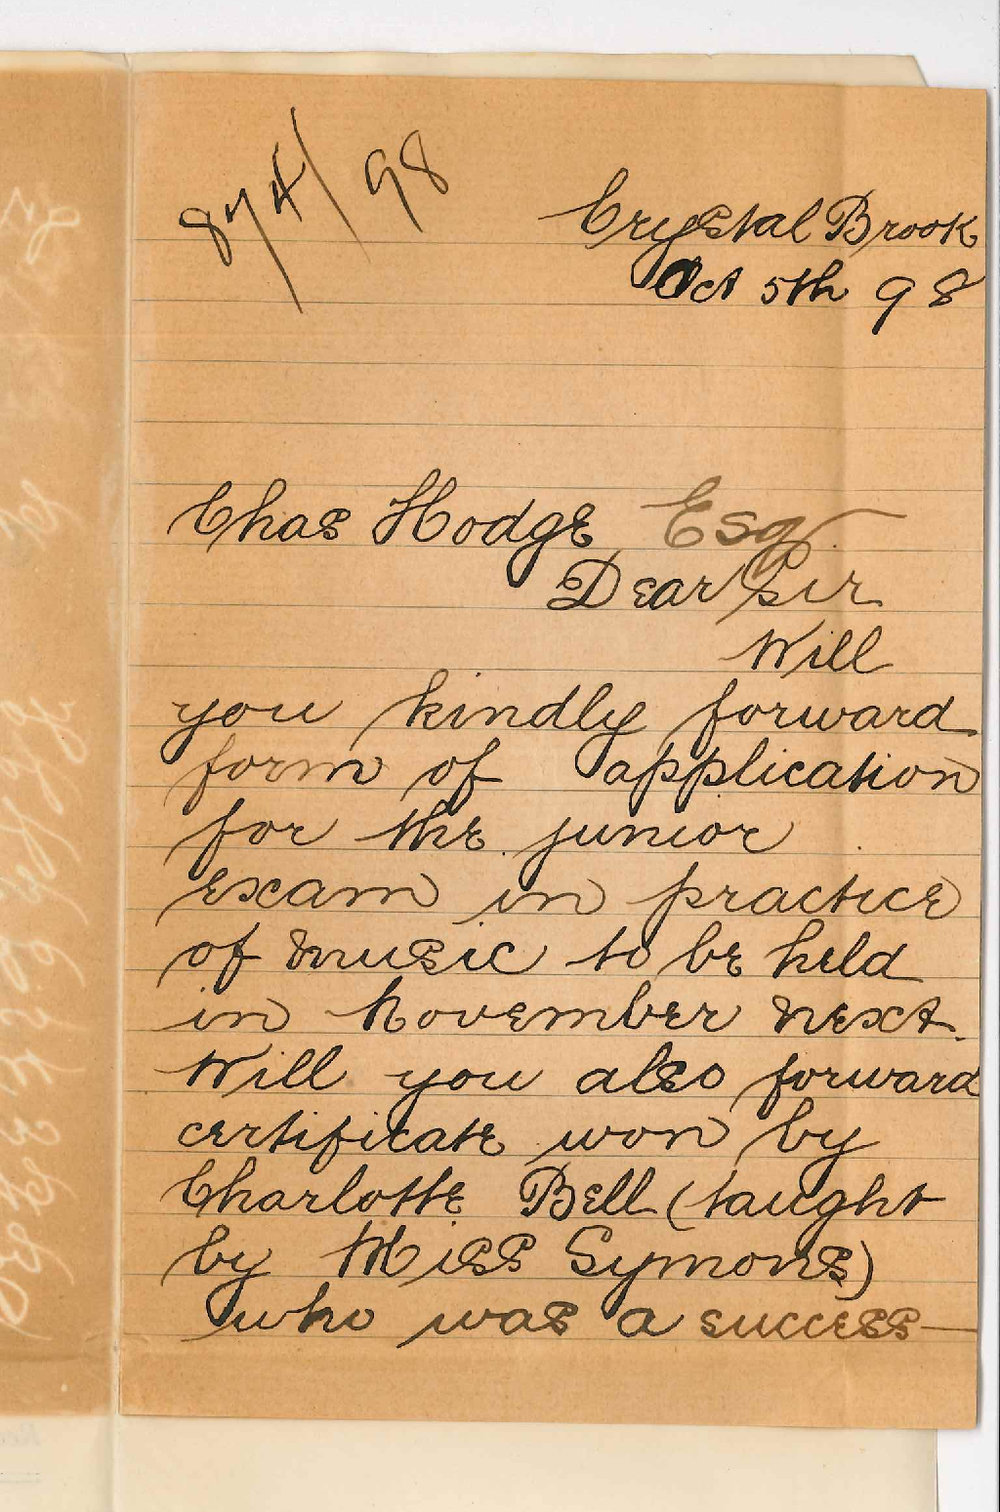 874/98
Crystal Brook
Oct 5th 98
Chas Hodge Esq
Dear Sir
Will
you kindly forward
form of application
for the junior
exam in practice
of music to be held
in November next.
Will you also forward
certificate won by
Charlotte Bell (taught
by Miss Symons)
who was a success-